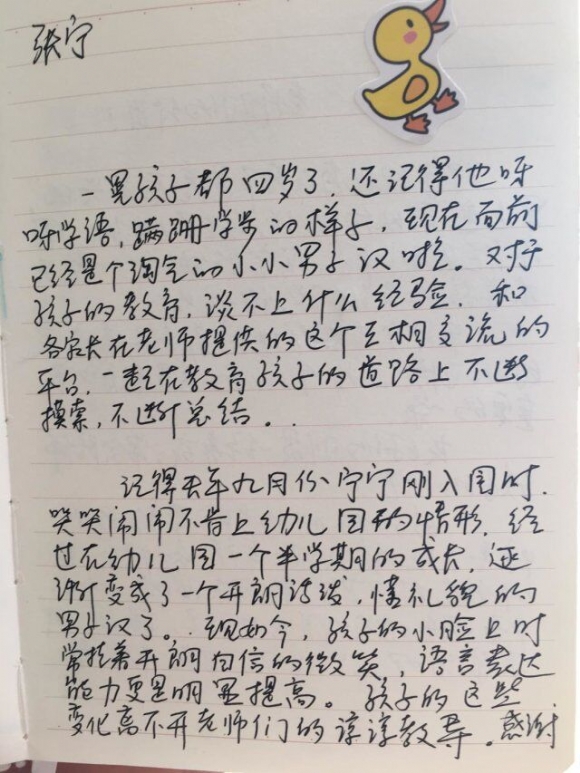 张宁
一晃孩子都四岁了,还记得他呀
呀学语,蹒跚学步的样子,现在面前
已经是个淘气的小小男子汉啦。对于
孩子的教育,谈不上什么经验,和
各家长在老师提供的这个互相交流的
平台,一起在教育孩子的道路上不断
摸索,不断总结。..
记得去年九月份宁宁刚入园时,
哭哭闹闹不肯上幼儿园的情形,经
过在幼儿园一个半学期的成长,逐
渐变成了一个开朗活泼,懂礼貌的
男子汉了。现如今,孩子的小脸上时
常挂着开朗自信的微笑,语言表达
能力更是明显提高。孩子的这些
变化离不开老师们的谆谆教导。感谢